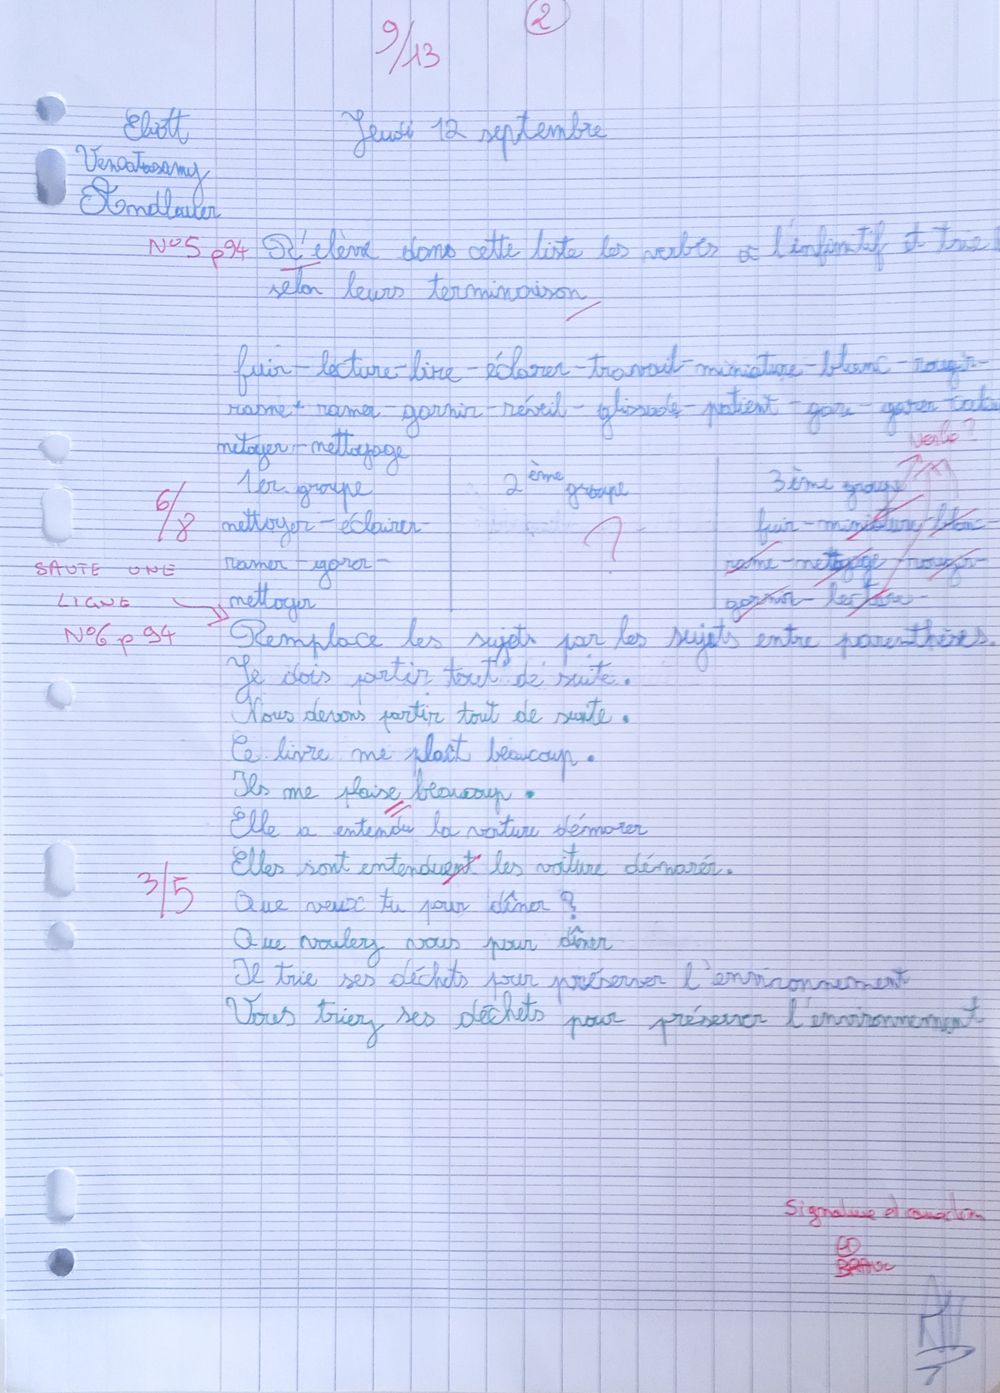 2
9/13
Eliott
Jeudi 12 septembre
Vencatasamy
N°5 p94 R'elève dans cette liste les verbes a l'infinitif et trie
selon leurs terminaison
fuir - lecture - lire - éclairer - travail - miniature - blanc - rougir -
rame + ramer garnir - réveil - glissade - patient - gare - garer
netoyer - nettoyage
verbe?
1er groupe 2ème groupe 3ème groupe
6/8
nettoyer - éclairer - fuir - miniature - blan -
ramer - garer - ? rame - nettoyage - rougir -
SAUTE UNE
LIGNE
nettoyer garnir - lecture -
N°6 p 94 Remplace les sujets par les sujets entre parenthèses.
Je dois partir tout de suite.
Nous devons partir tout de suite.
Ce livre me plaît beaucoup.
Ils me plaise beaucoup.
Elle a entendu la voiture démarer
Elles sont entenduent les voiture démarér.
3/5
Que veux tu pour dîner ?
Que voulez vous pour dîner
Il trie ses déchets pour préserver l'environnement
Vous triez ses déchets pour préserver l'environnement
Signature et correction